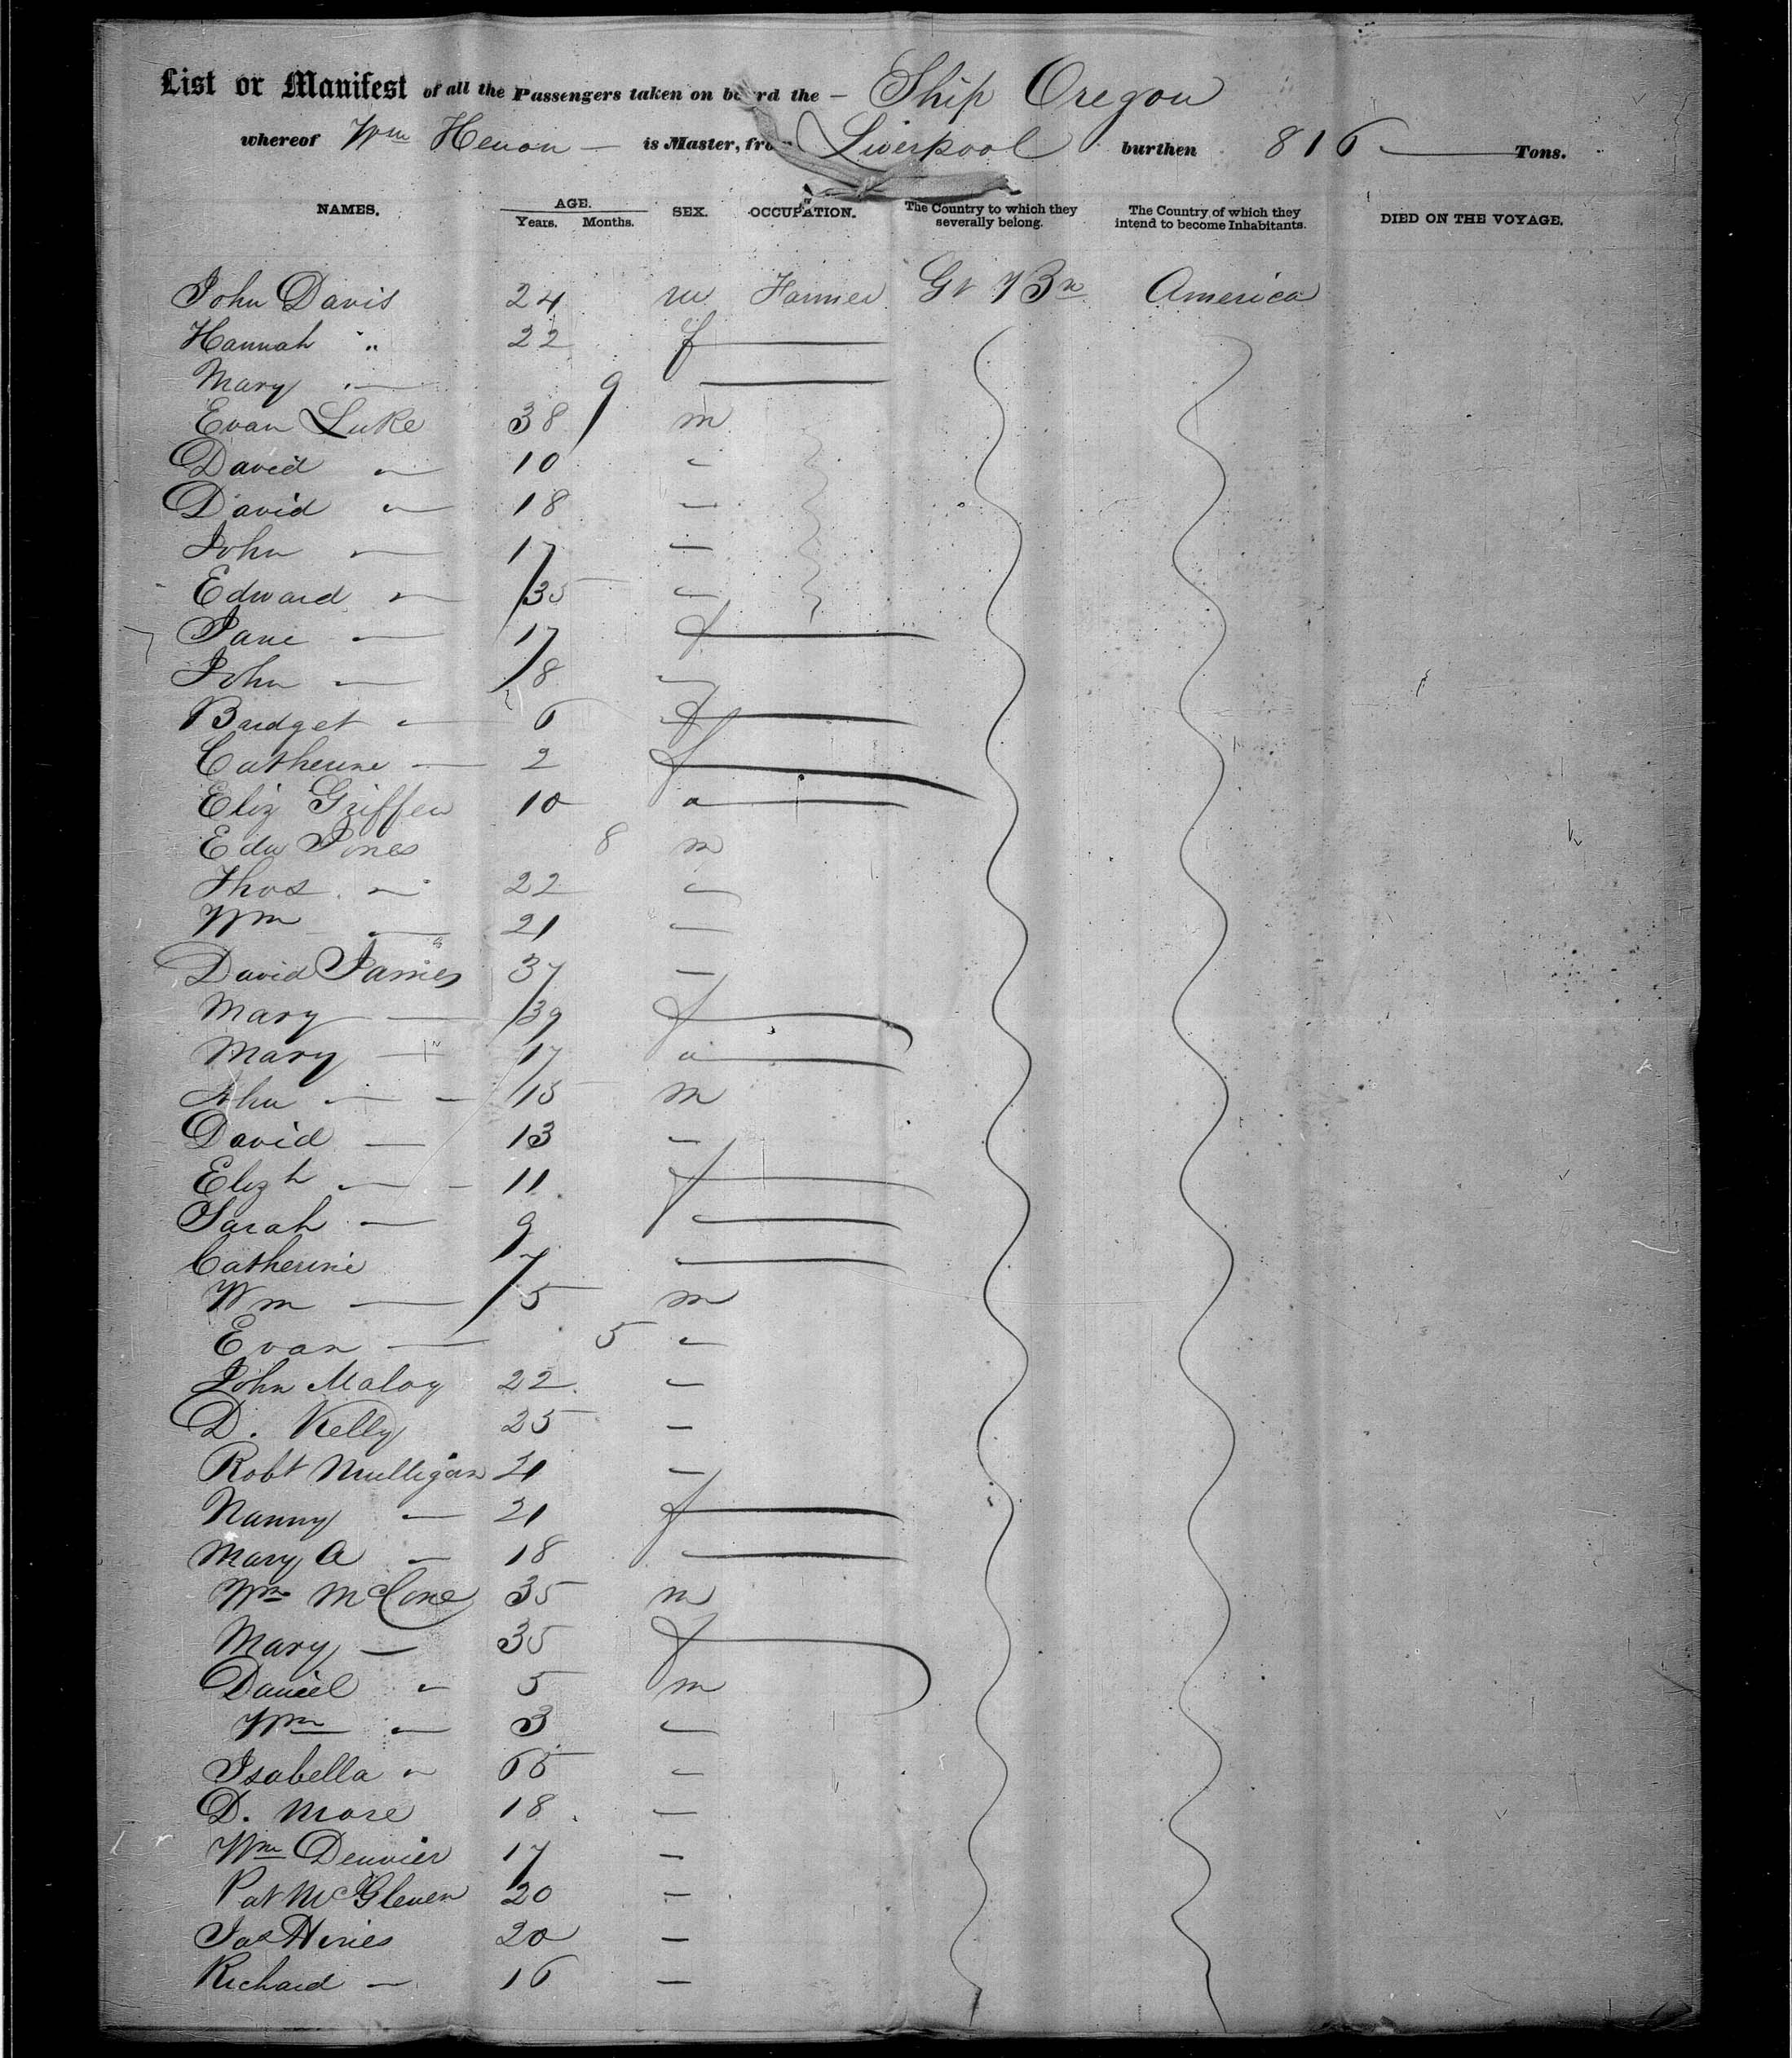 List or Manifest of all the Passengers taken on board the — Ship Oregon
whereof Wm Henon — is Master, from Liverpool burthen 816 — Tons.
NAMES. AGE. Years. Months. SEX. OCCUPATION. The Country to which they severally belong. The Country of which they intend to become Inhabitants. DIED ON THE VOYAGE.
John Davis 24 m Farmer Gt Bn America
Hannah " 22 f
Mary — 9
Evan Luke 38 m
David " 10 "
David " 18 "
John " 17 "
Edward " 35 "
Jane — 17 f
John — 8 "
Bridget " 6 f
Catherine — 2 f
Eliz Griffen 10 "
Edw Jones 8 m
Thos " 22 "
Wm — 21 "
David James 37 —
Mary — 39 f
Mary — 17 "
John — 15 m
David — 13 —
Elizh — 11 f
Sarah — 9 "
Catherine 7 "
Wm — 5 m
Evan — 5 "
John Maloy 22 "
D. Kelly 25 —
Robt Mulligan 21 —
Nanny — 21 f
Mary A — 18 "
Wm McCone 35 m
Mary — 35 f
Daniel " 5 m
Wm " 3 "
Isabella " 65 "
D. More 18 —
Wm 17 —
Pat McGleven 20 —
Jas Hines 20 —
Richard — 16 —